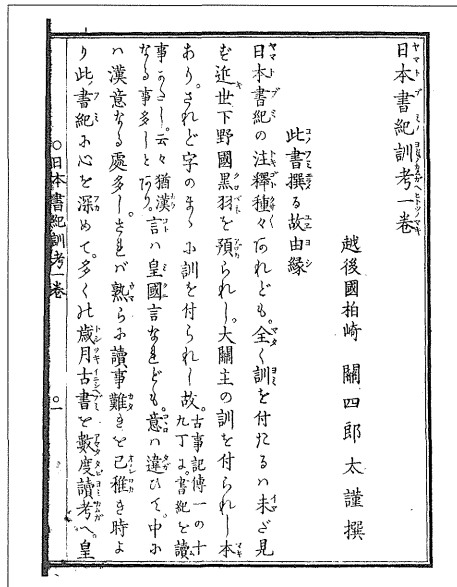 日本書紀訓考一卷
越後國柏崎 關四郎太謹撰
此書撰る故由縁
日本書紀の注釋種々あれども。全く訓を付たるハ未ざ見
ず近世下野國黒羽を預られし。大關主の訓を付られし本
あり。されど字のまゝに訓を付られし故。古事記傳一の十九丁に。書紀を讀
事かたし。云々猶漢なる事多しとあり。言ハ皇國言なれども。意ハ違ひて。中に
ハ漢意なる處多し。されバ熟らに讀事難きを己稚き時よ
り此書紀に心を深めて。多くの歳月古書を數度讀考へ。皇
〇日本書紀訓考一卷 〇一